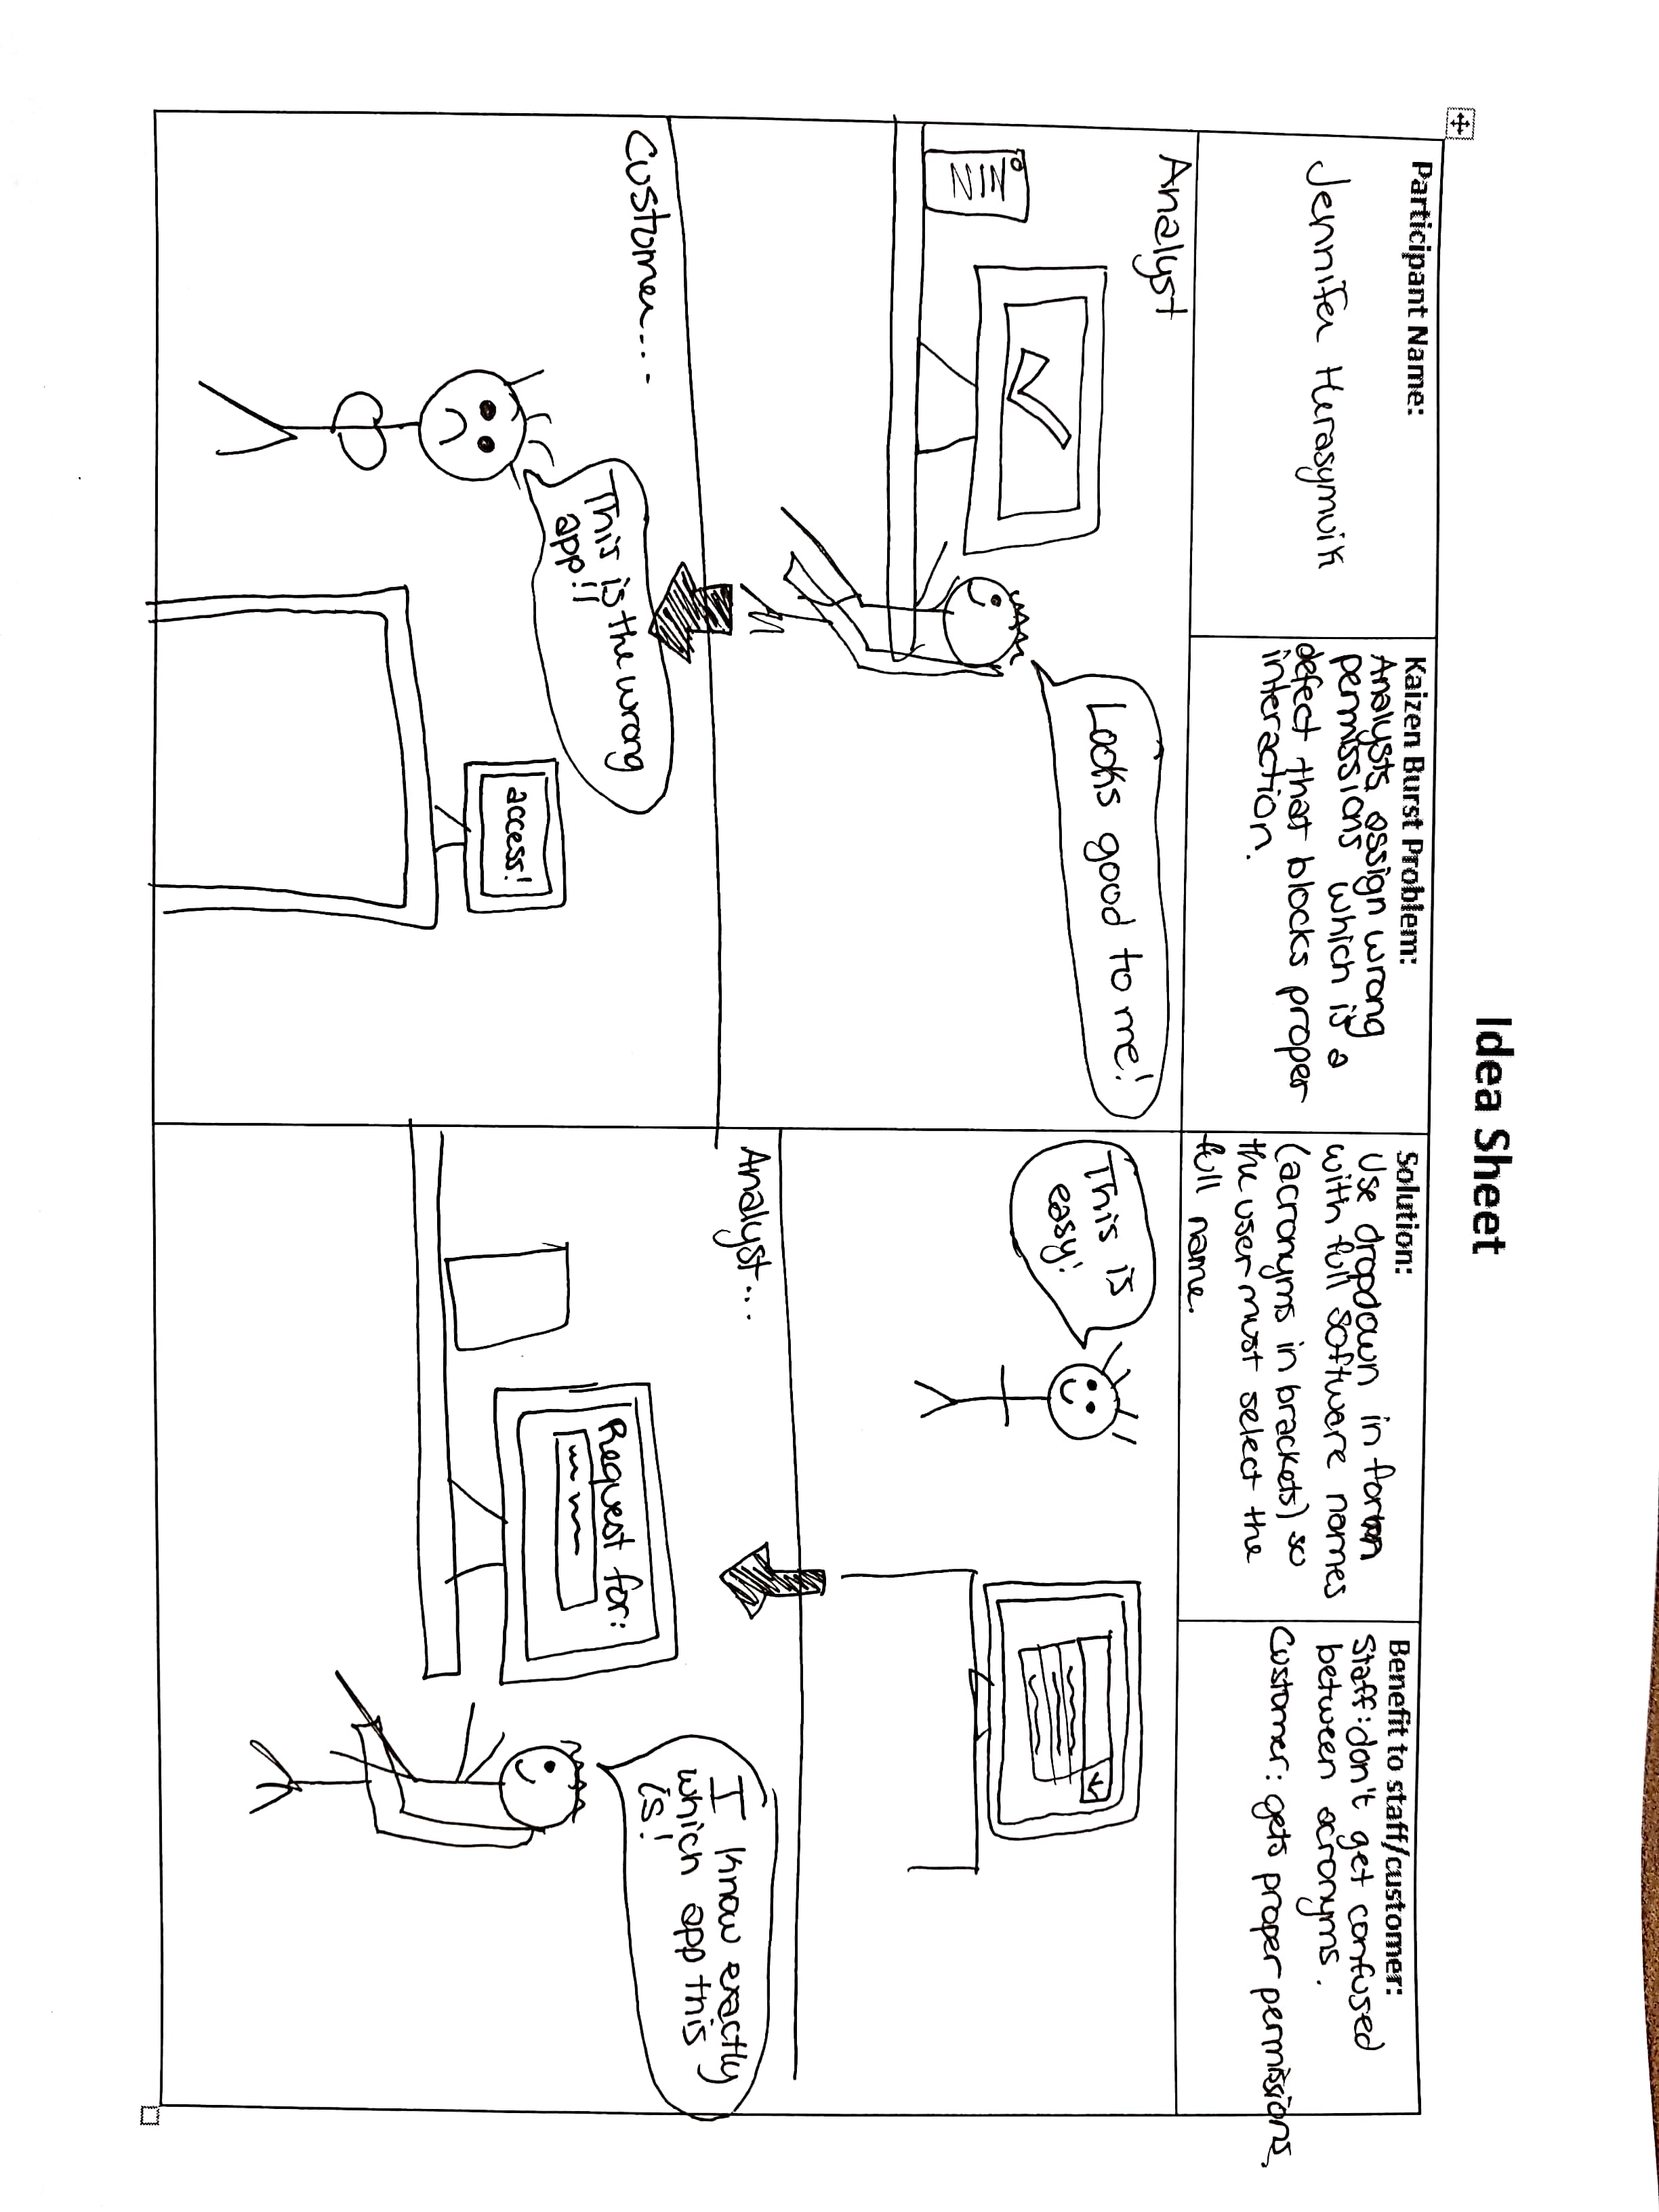 Idea Sheet
Participant Name:
Jennifer Herasymuik
Kaizen Burst Problem:
Analysts assign wrong
permissions which is a
defect that blocks proper
interaction.
Solution:
Use dropdown in form
with full software names
(acronyms in brackets) so
the user must select the
full name.
Benefit to staff/customer:
Staff: don't get confused
between acronyms.
Customer: gets proper permissions.
Analyst
Looks good to me!
Customer...
This is the wrong
app!!
access!
This is
easy!
Analyst...
Request for:
I know exactly
which app this
is!